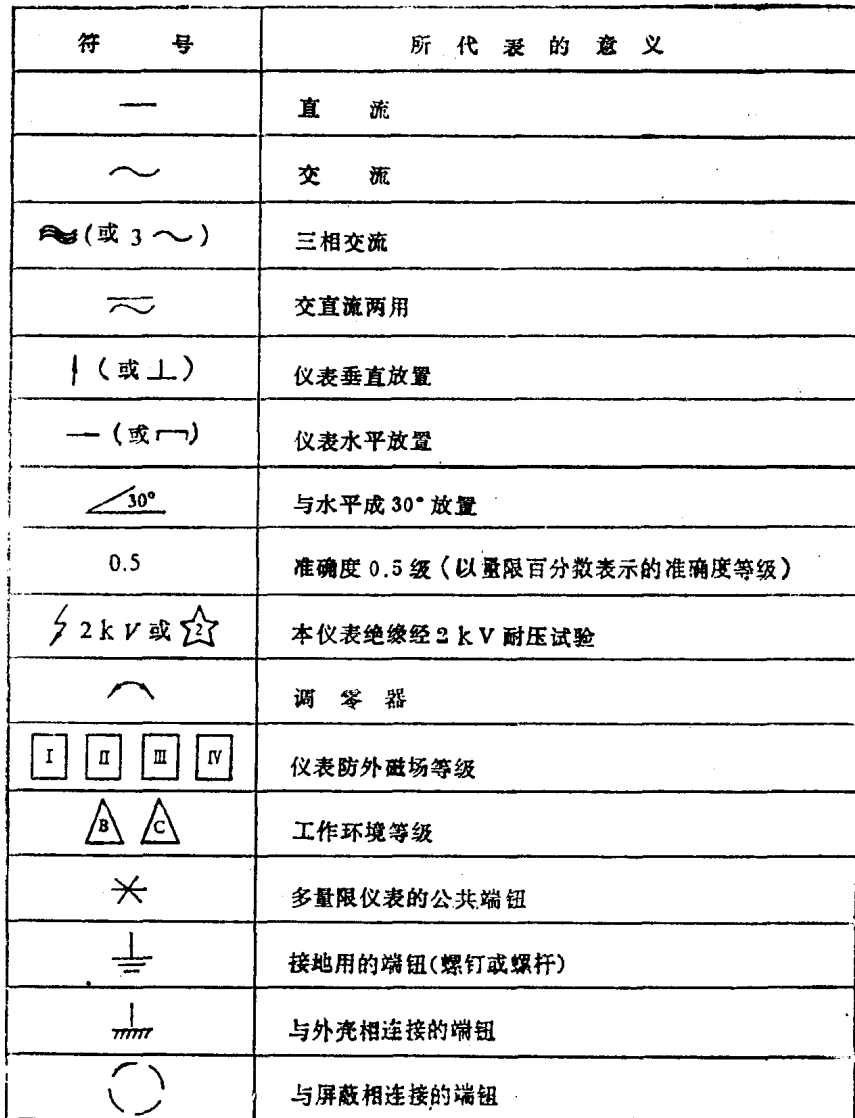 符 号 所 代 表 的 意 义
— 直 流
～ 交 流
(或 3 ～) 三相交流
交直流两用
(或 ⊥) 仪表垂直放置
— (或 ) 仪表水平放置
30° 与水平成 30° 放置
0.5 准确度 0.5 级 (以量限百分数表示的准确度等级)
2 k V 或 2 本仪表绝缘经 2 k V 耐压试验
调 零 器
I II III IV 仪表防外磁场等级
B C 工作环境等级
多量限仪表的公共端钮
接地用的端钮(螺钉或螺杆)
与外壳相连接的端钮
与屏蔽相连接的端钮